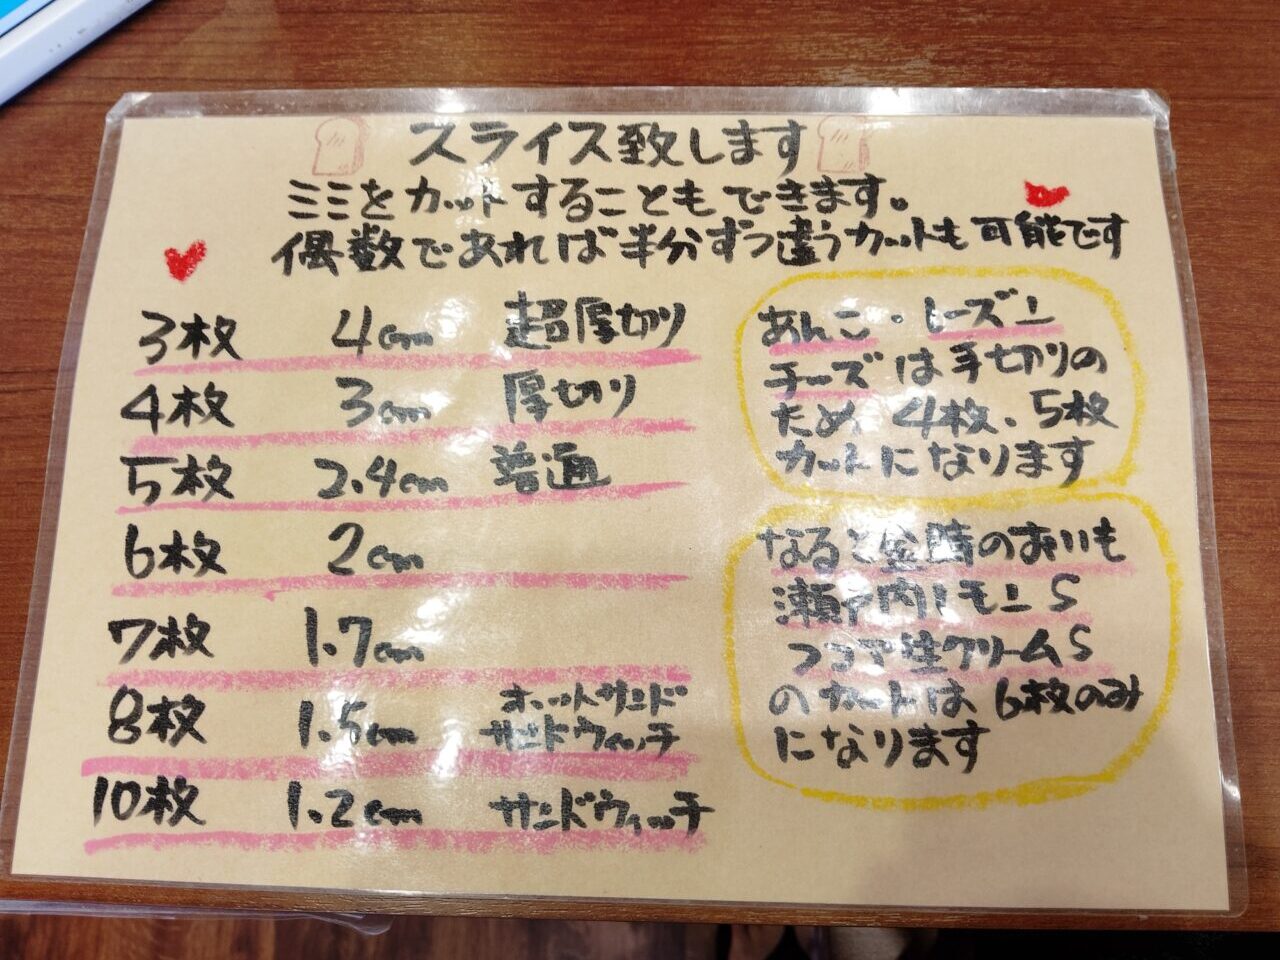 スライス致します
ミミをカットすることもできます。
偶数であれば半分ずつ違うカットも可能です
3枚 4cm 超厚切り
4枚 3cm 厚切り
5枚 2.4cm 普通
6枚 2cm
7枚 1.7cm
8枚 1.5cm ホットサンド
サンドウィッチ
10枚 1.2cm サンドウィッチ
あんこ・レーズン
チーズは手切りの
ため 4枚、5枚
カットになります
なると金時のおいも
瀬戸内レモンS
ココア生クリームS
のカットは 6枚のみ
になります